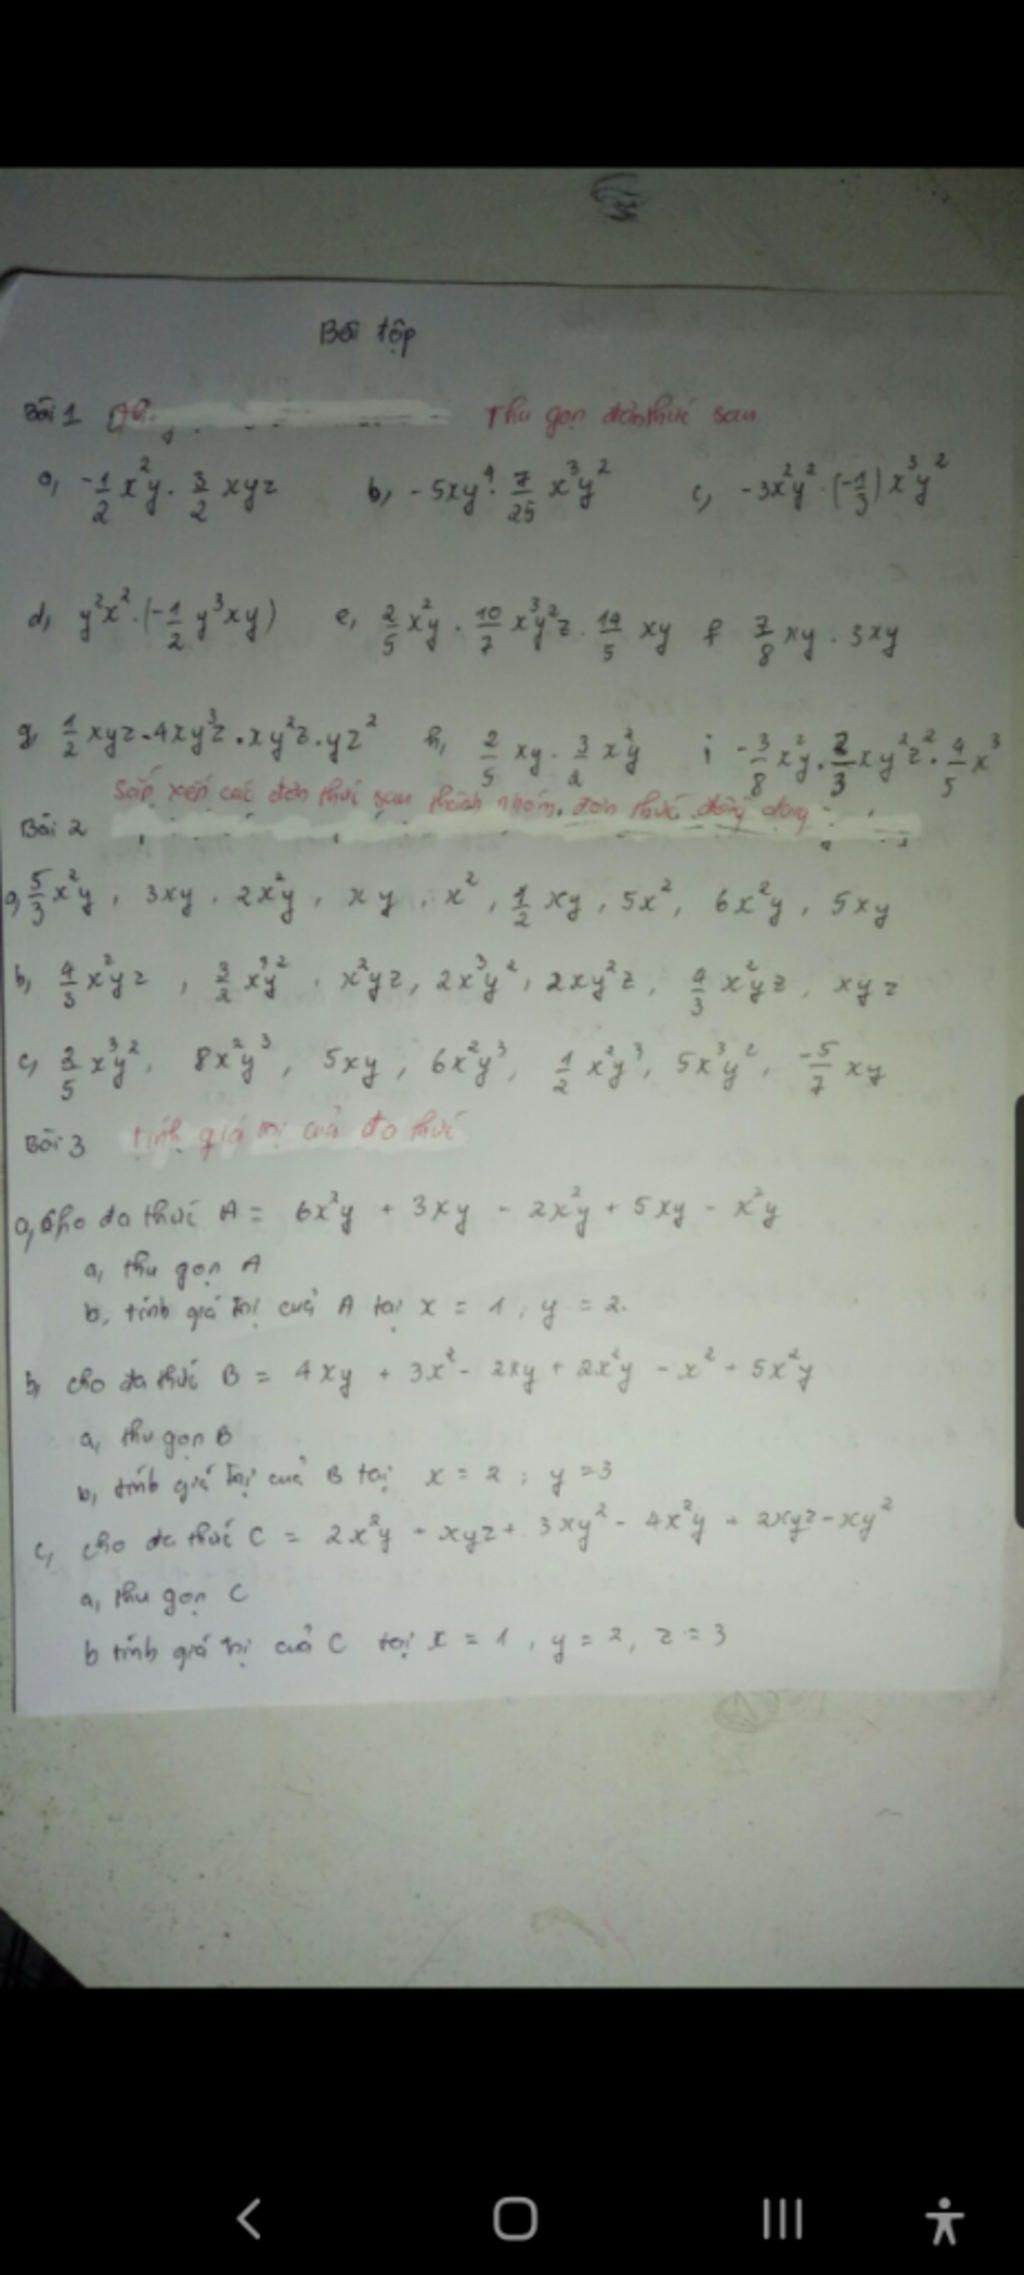 Bài tập
Bài 1 Thu gọn đơn thức sau
a, -1/2 x²y . 3/2 xyz b, -5xy⁴ . 7/25 x³y² c, -3x²y² . (-1/3) x³y²
d, y²x² . (-1/2 y³xy) e, 2/5 x²y . 10/7 x³y²z . 14/5 xy f 7/8 xy . 3xy
g, 1/2 xyz . 4xy³z . xy²z . yz² h, 2/5 xy . 3/2 x²y i -3/8 x²y . 2/3 xy²z² . 4/5 x³
Sắp xếp các đơn thức sau thành nhóm đơn thức đồng dạng
Bài 2
a, 5/3 x²y, 3xy, 2x²y, xy, x², 1/2 xy, 5x², 6x²y, 5xy
b, 4/3 x²yz, 3/2 x³y², x²yz, 2x³y², 2xy²z, 4/3 x²yz, xyz
c, 3/5 x³y², 8x²y³, 5xy, 6x²y³, 1/2 x²y³, 5x³y², -5/7 xy
Bài 3 tính giá trị của đa thức
a, cho đa thức A = 6x²y + 3xy - 2x²y + 5xy - x²y
a, thu gọn A
b, tính giá trị của A tại x = 1, y = 2.
b, cho đa thức B = 4xy + 3x² - 2xy + 2x²y - x² + 5x²y
a, thu gọn B
b, tính giá trị của B tại x = 2; y = 3
c, cho đa thức C = 2x²y + xyz + 3xy² - 4x²y + 2xyz - xy²
a, thu gọn C
b tính giá trị của C tại x = 1, y = 2, z = 3